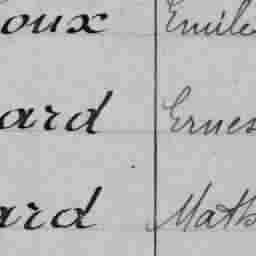 oux Emile
ard Ernes
ard Math